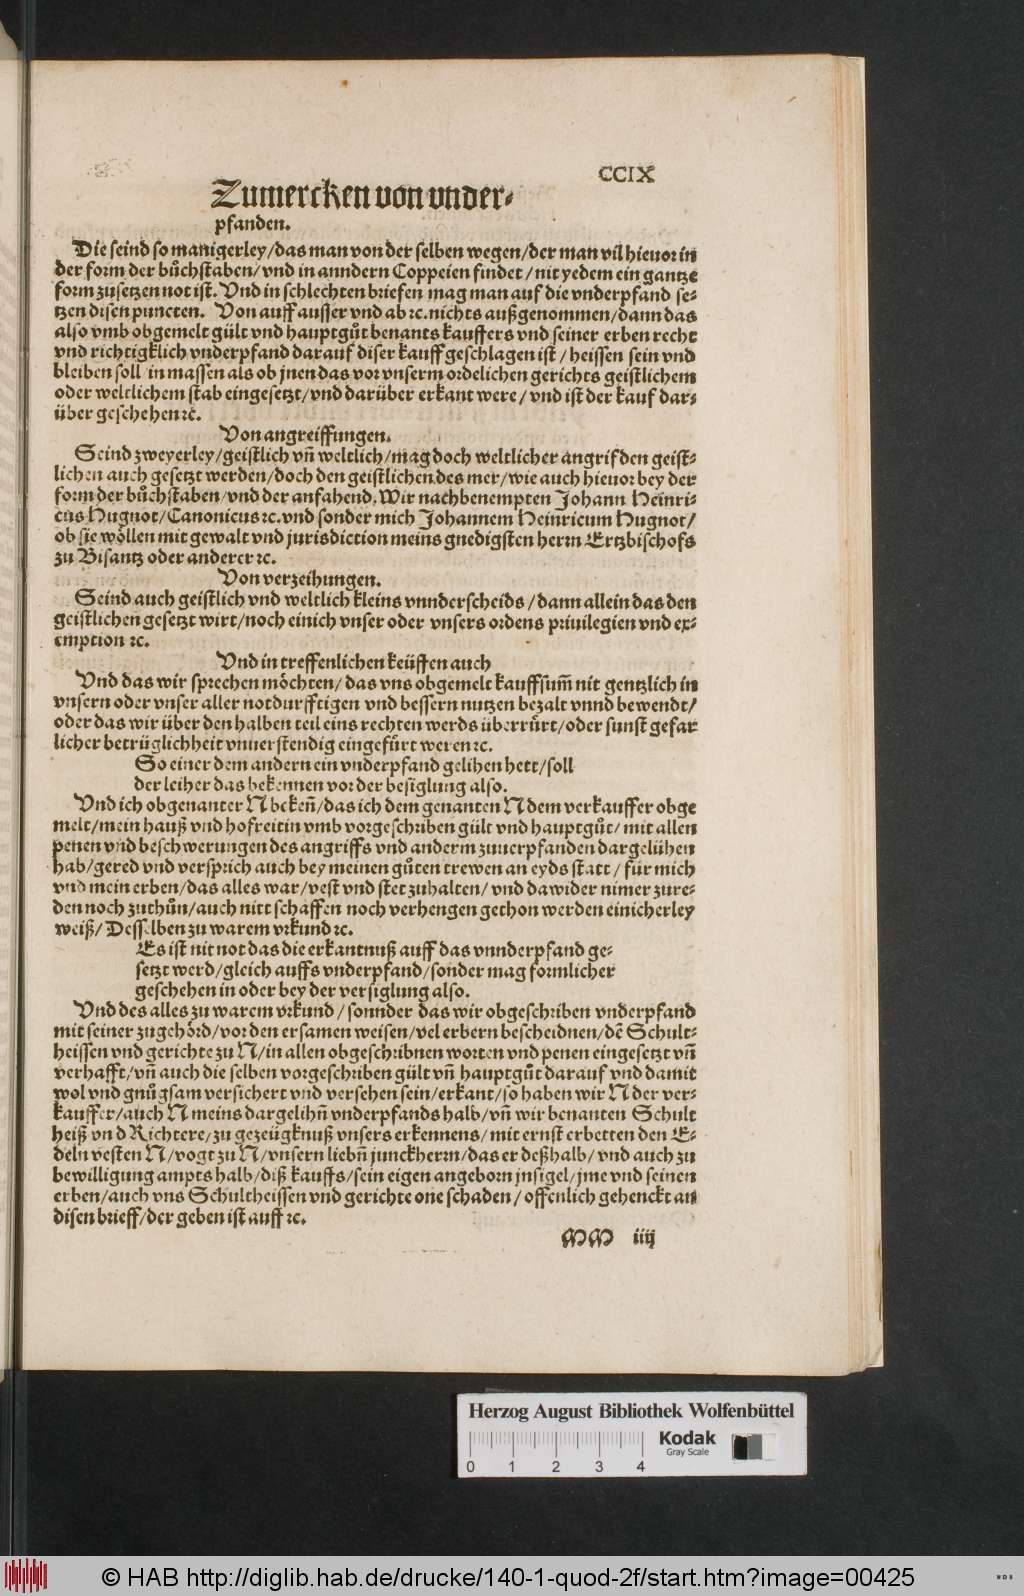 CCIX
Zumercken von vnder-
pfanden.
Die seind so manigerley/das man von der selben wegen/der man vil hieuor in
der form der bůchstaben/vnd in anndern Coppeien findet/nit yedem ein gantze
form zusetzen not ist. Vnd in schlechten briefen mag man auf die vnderpfand se-
tzen disen puncten. Von auff ausser vnd ab ꝛc. nichts außgenommen/dann das
also vmb obgemelt gült vnd hauptgůt benants kauffers vnd seiner erben recht
vnd richtigklich vnderpfand darauf diser kauff geschlagen ist/heissen sein vnd
bleiben soll in massen als ob jnen das vor vnserm ordelichen gerichts geistlichem
oder weltlichem stab eingesetzt/vnd darüber erkant were/vnd ist der kauf dar-
über geschehen ꝛc.
Von angreiffungen.
Seind zweyerley/geistlich vñ weltlich/mag doch weltlicher angrif den geist-
lichen auch gesetzt werden/doch den geistlichen des mer/wie auch hieuor bey der
form der bůchstaben/vnd der anfahend. Wir nachbenempten Johann Heinri-
cus Hugnot/Canonicus ꝛc. vnd sonder mich Johannem Heinricum Hugnot/
ob sie wöllen mit gewalt vnd jurisdiction meins gnedigsten herrn Ertzbischofs
zu Bisantz oder anderer ꝛc.
Von verzeihungen.
Seind auch geistlich vnd weltlich kleins vnnderscheids/dann allein das den
geistlichen gesetzt wirt/noch einich vnser oder vnsers ordens priuilegien vnd ex-
emption ꝛc.
Vnd in treffenlichen keüffen auch
Vnd das wir sprechen möchten/das vns obgemelt kauffsum̃ nit gentzlich in
vnsern oder vnser aller notdurfftigen vnd bessern nutzen bezalt vnnd bewendt/
oder das wir über den halben teil eins rechten werds überrürt/oder sunst gefar
licher betrüglichheit vnuerstendig eingefürt weren ꝛc.
So einer dem andern ein vnderpfand gelihen hett/soll
der leiher das bekennen vor der besiglung also.
Vnd ich obgenanter N bekeñ/das ich dem genanten N dem verkauffer obge
melt/mein hauß vnd hofreitin vmb vorgeschriben gült vnd hauptgůt/mit allen
penen vnd beschwerungen des angriffs vnd anderm zuuerpfanden dargelühen
hab/gered vnd versprich auch bey meinen gůten trewen an eyds statt/für mich
vnd mein erben/das alles war/vest vnd stet zuhalten/vnd dawider nimer zure-
den noch zuthůn/auch nitt schaffen noch verhengen gethon werden einicherley
weiß/Desselben zu warem vrkund ꝛc.
Es ist nit not das die erkantnuß auff das vnnderpfand ge-
setzt werd/gleich auffs vnderpfand/sonder mag formlicher
geschehen in oder bey der versiglung also.
Vnd des alles zu warem vrkund/sonnder das wir obgeschriben vnderpfand
mit seiner zugehörd/vor den ersamen weisen/vel erbern bescheidnen/dẽ Schult-
heissen vnd gerichte zu N/in allen obgeschribnen worten vnd penen eingesetzt vñ
verhafft/vñ auch die selben vorgeschriben gült vñ hauptgůt darauf vnd damit
wol vnd gnůgsam versichert vnd versehen sein/erkant/so haben wir N der ver-
kauffer/auch N meins dargelihñ vnderpfands halb/vñ wir benanten Schult
heiß vnd Richtere/zu gezeügknuß vnsers erkennens/mit ernst erbetten den E-
deln vesten N/vogt zu N/vnsern liebñ junckherrn/das er deßhalb/vnd auch zu
bewilligung ampts halb/diß kauffs/sein eigen angeborn jnsigel/jme vnd seinen
erben/auch vns Schultheissen vnd gerichte one schaden/offenlich gehenckt an
disen brieff/der geben ist auff ꝛc.
MM iiij
Herzog August Bibliothek Wolfenbüttel
Kodak
Gray Scale
0 1 2 3 4
© HAB http://diglib.hab.de/drucke/140-1-quod-2f/start.htm?image=00425